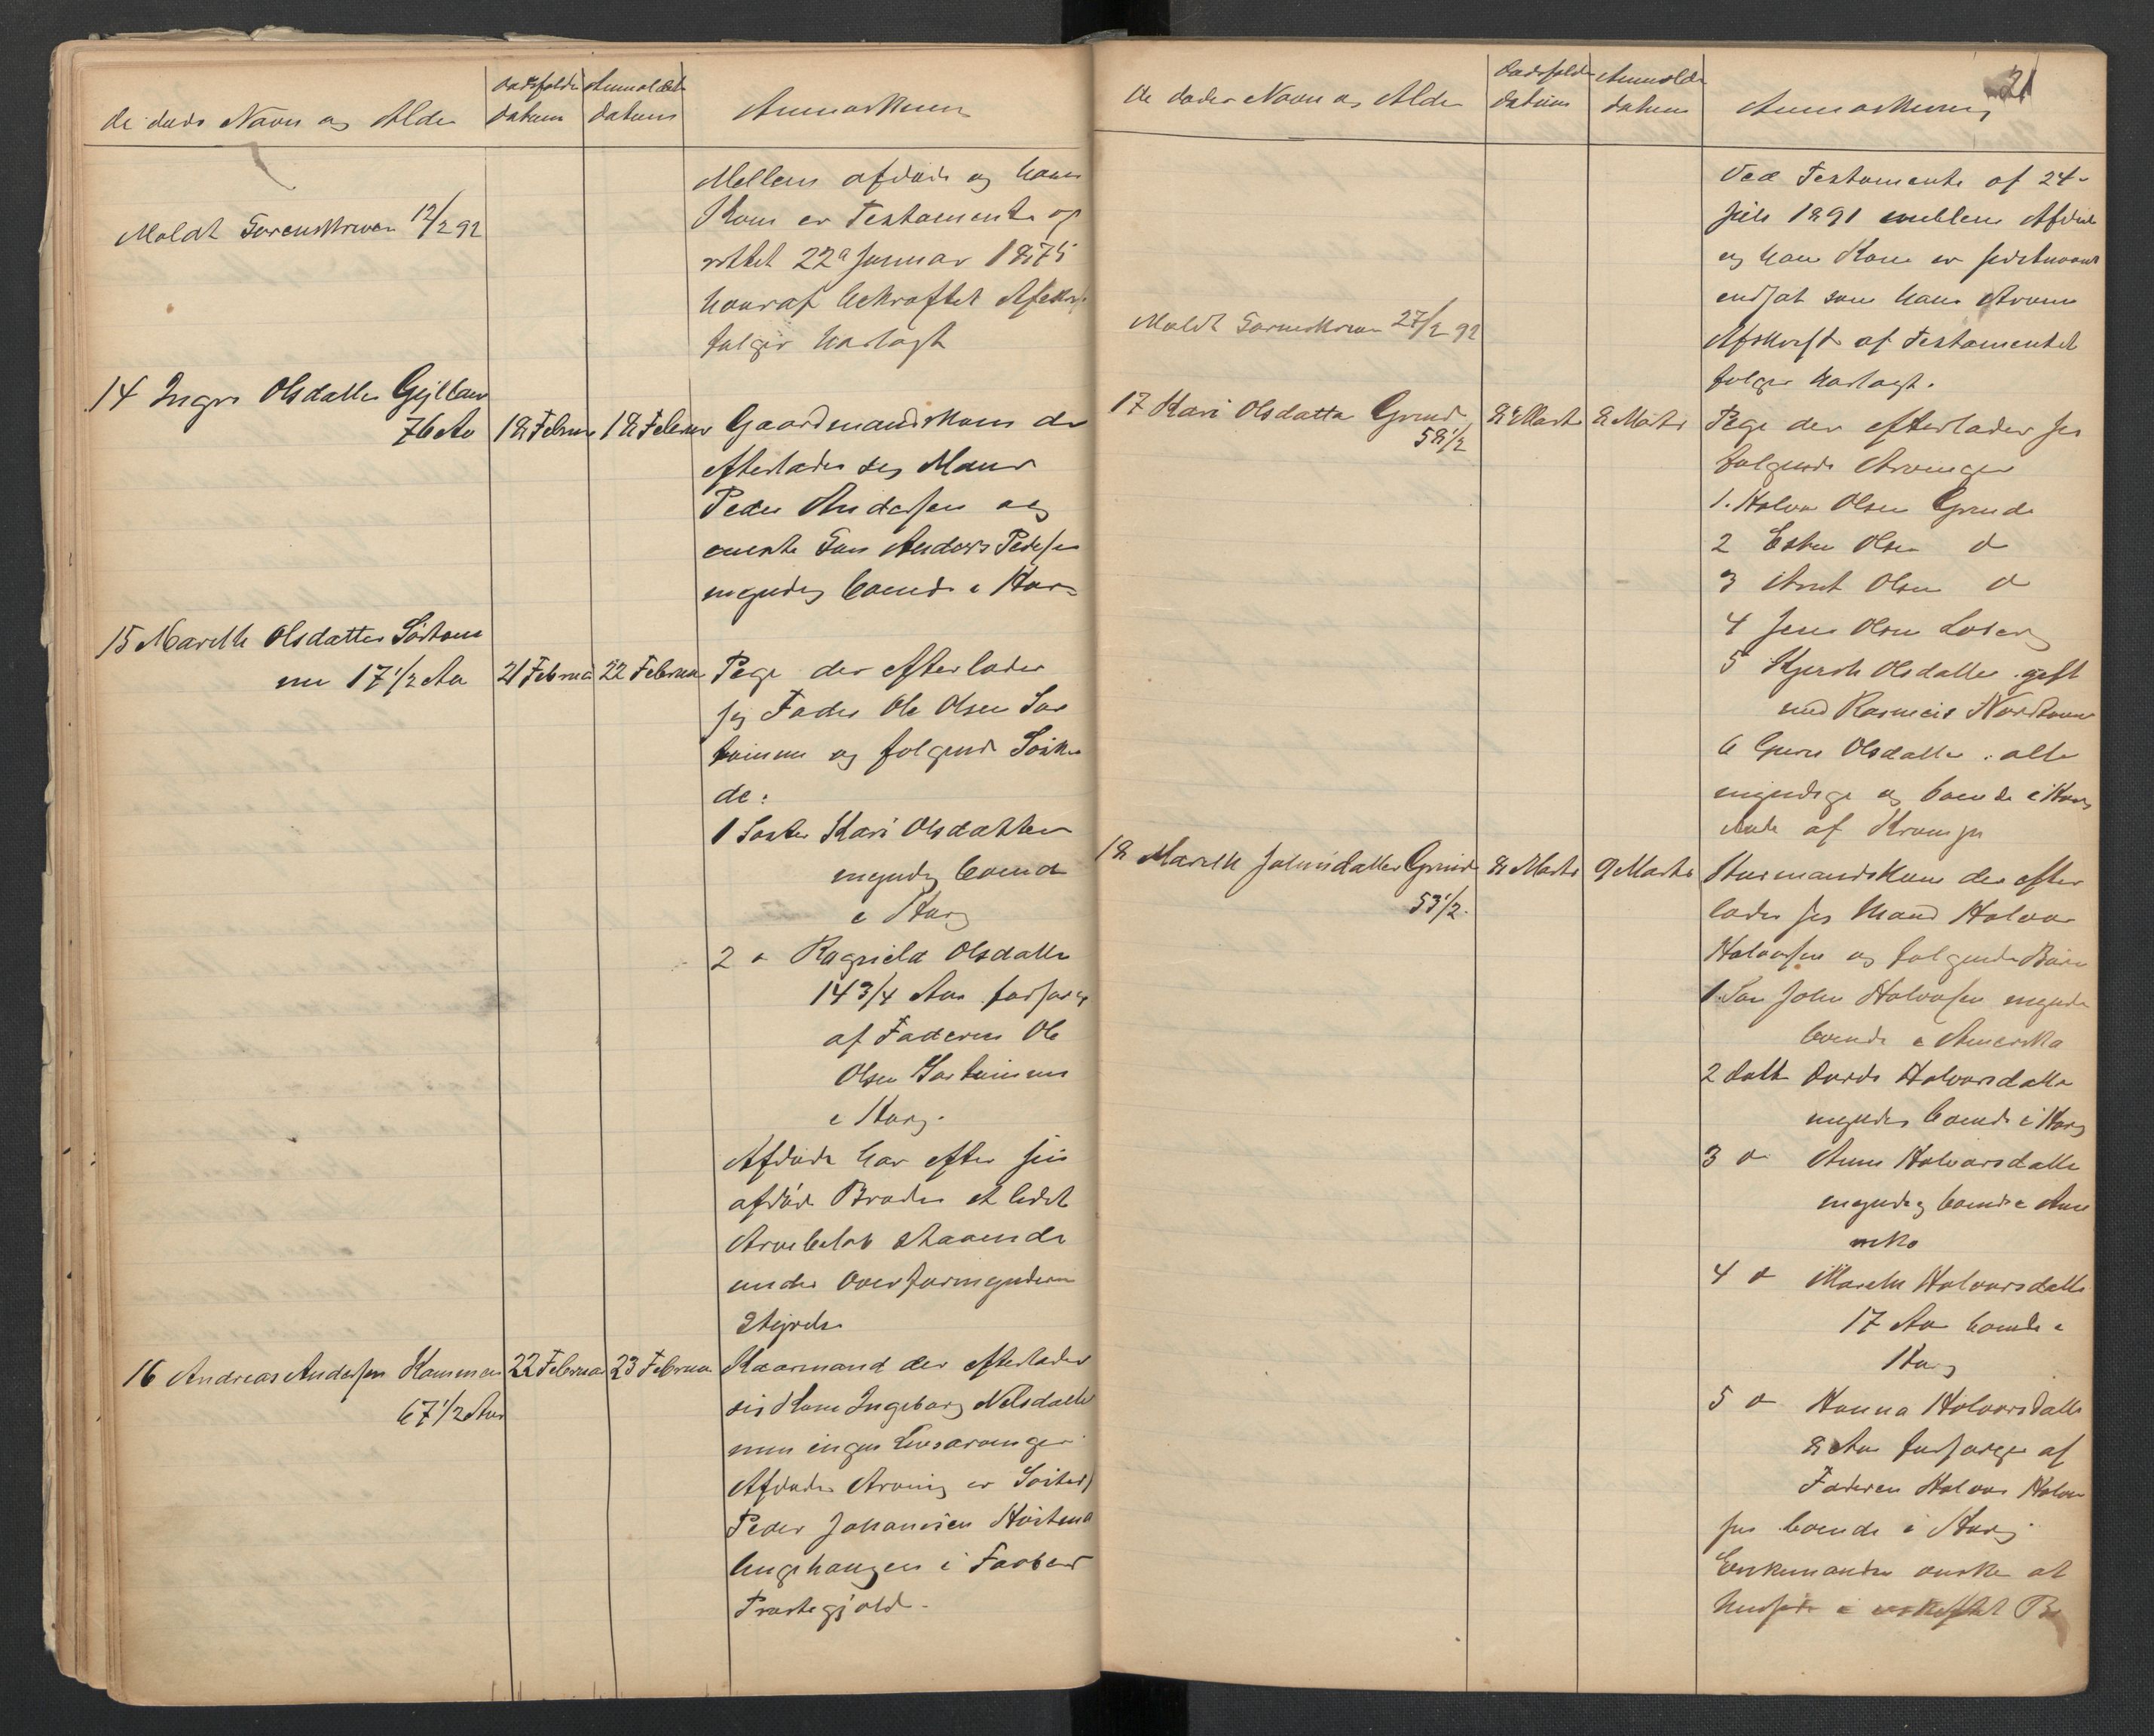 de døde Navn og Alder
Dødsfalds datum
Anmeldelse datum
Anmærkning
Mellem afdøde og hans
Kone er Testamente op
rettet 22d Januar 1875
hvoraf bekræftet Afskrift
følger vedlagt
Meldt Sorenskriveren 12/2 92
14 Ingri Olsdatter Gylland
76 Aar
18 Februar
18 Februar
Gaardmandskone der
efterlader sig Mand
Peder Andersen og
eneste Søn Anders Pedersen
myndig boende i Hor=
15 Marethe Olsdatter Sørtømme
me 17 1/2 Aar
21 Februar
22 Februar
Pige der efterlader
sig Fader Ole Olsen Sør
tømme og følgende Søsken
de:
1 Søster Kari Olsdatter
myndig boende
i Horg
2 d Ragnild Olsdatter
14 3/4 Aar forsørges
af Faderen Ole
Olsen Sørtømme
i Horg.
Afdøde har efter sin
afdøde Broder et lidet
Arvebeløb staaende
under Overformynderiets
Styrelse
16 Andreas Andersen Kammen
67 1/2 Aar
22 Februar
23 Februar
Kaarmand der efterlader
sig Kone Ingeborg Nilsdatter
men ingen Livsarvinger
Afdødes Arving er Søsters
Peder Johansen
i
Præstegjæld.
21
de døde Navn og Alder
Dødsfalds datum
Anmeldelse datum
Anmærkning
Ved Testamente af 24-
Juli 1891 mellem Afdøde
og hans Kone er sidstnævnte
indsat som hans Arving
Afskrift af Testamentet
følger vedlagt.
Meldt Sorenskriveren 27/2 92
17 Kari Olsdatter Grinde
58 1/2
8 Marts
8 Marts
Pige der efterlader sig
følgende Arvinger
1. Halvor Olsen Grinde
2 Esten Olsen d
3 Arnt Olsen d
4 Jens Olsen Løberg
5 Kjersti Olsdatter gift
med Rasmus Nordtømme
6 Guru Olsdatter: alle
myndige og boende i Horg
18 Marethe Johnsdatter Grinde
53 1/2.
8 Marts
9 Marts
Husmandskone der efter
lader sig Mand Halvor
Halvorsen og følgende Børn
1. Søn John Halvorsen myndig
boende i Amerika
2 Datt Dordi Halvorsdatter
myndig boende i Horg
3 d Anne Halvorsdatter
myndig boende i Ame
rika
4 d Marethe Halvorsdatter
17 Aar boende i
Horg
5 d Hanna Halvorsdatter
8 Aar forsørges af
Faderen Halvor Halvor
sen boende i Horg.
Enkemanden ønsker at
hensidde i uskiftet Bo